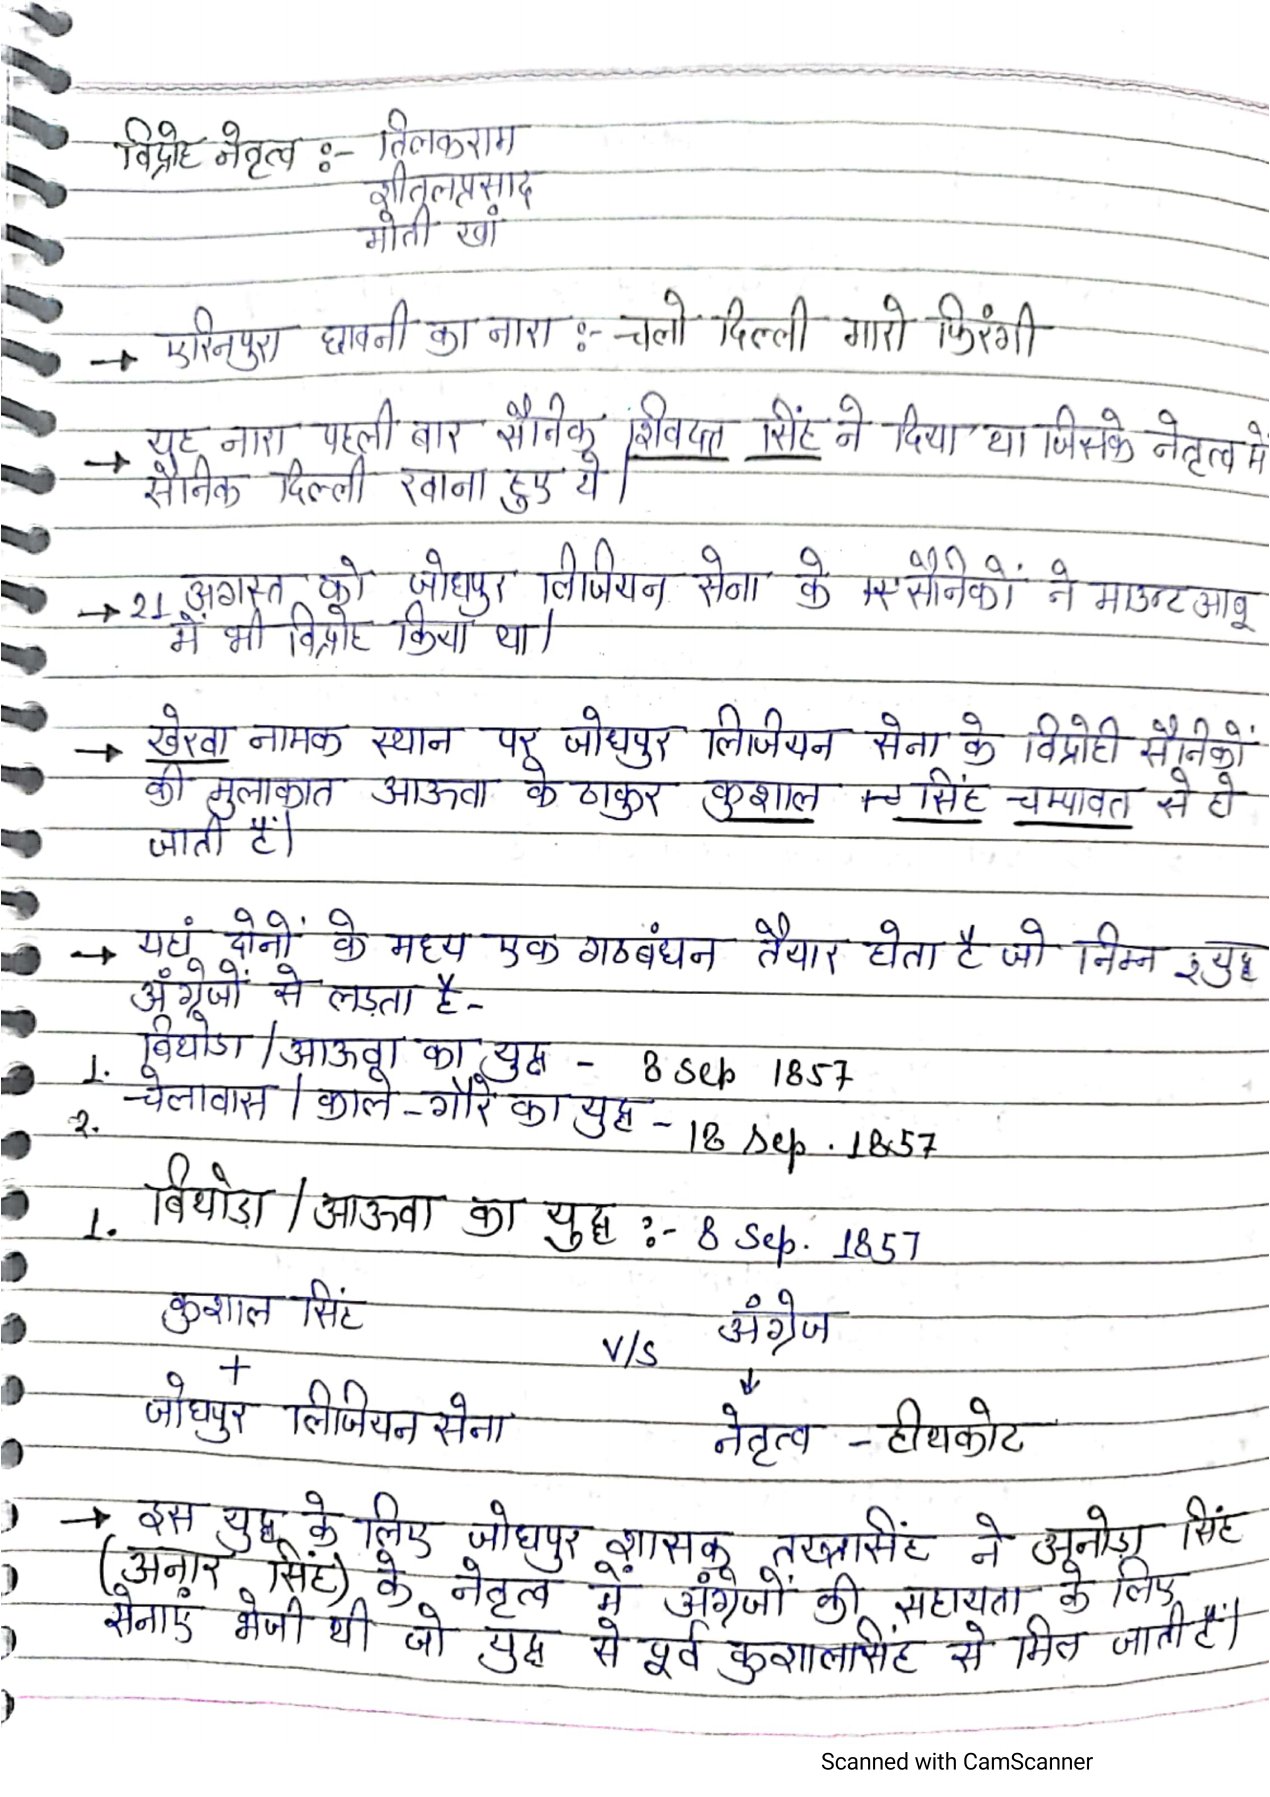 विद्रोह नेतृत्व :- तिलकराम
शीतलप्रसाद
मोती खां
→ एरिनपुरा छावनी का नारा :- चलो दिल्ली मारो फिरंगी
→ यह नारा पहली बार सैनिक शिवदत्त सिंह ने दिया था जिसके नेतृत्व में
सैनिक दिल्ली रवाना हुए थे।
→ 21 अगस्त को जोधपुर लिजियन सेना के सैनिकों ने माउन्ट आबू
में भी विद्रोह किया था।
→ खेरवा नामक स्थान पर जोधपुर लिजियन सेना के विद्रोही सैनिकों
की मुलाकात आऊवा के ठाकुर कुशाल सिंह चम्पावत से हो
जाती हैं।
→ यहां दोनों के मध्य एक गठबंधन तैयार होता है जो निम्न 2 युद्ध
अंग्रेजों से लड़ता है-
1. बिथोडा / आऊवा का युद्ध - 8 Sep 1857
2. चेलावास / काले-गौरे का युद्ध - 18 Sep. 1857
1. बिथोड़ा / आऊवा का युद्ध :- 8 Sep. 1857
कुशाल सिंह V/S अंग्रेज
+ ↓
जोधपुर लिजियन सेना नेतृत्व - हीथकोट
→ इस युद्ध के लिए जोधपुर शासक तख्तसिंह ने अनोड़ा सिंह
(अनार सिंह) के नेतृत्व में अंग्रेजों की सहायता के लिए
सेनाएं भेजी थी जो युद्ध से पूर्व कुशालसिंह से मिल जाती हैं।
Scanned with CamScanner